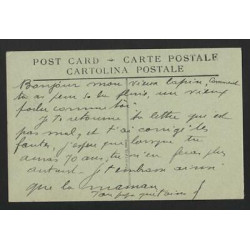 POST CARD – CARTE POSTALE
CARTOLINA POSTALE
Bonjour mon vieux lapin, quand
tu as peur tu fuis, un vieux
poilu comme toi
Je te retourne ta lettre qui est
pas mal, et t'ai corrigé les
fautes, j'espère que lorsque tu
auras 70 ans, tu n'en feras plus
autant. Je t'embrasse ainsi
que la maman